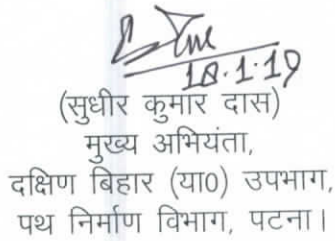 18.1.19
(सुधीर कुमार दास)
मुख्य अभियंता,
दक्षिण बिहार (या0) उपभाग,
पथ निर्माण विभाग, पटना।